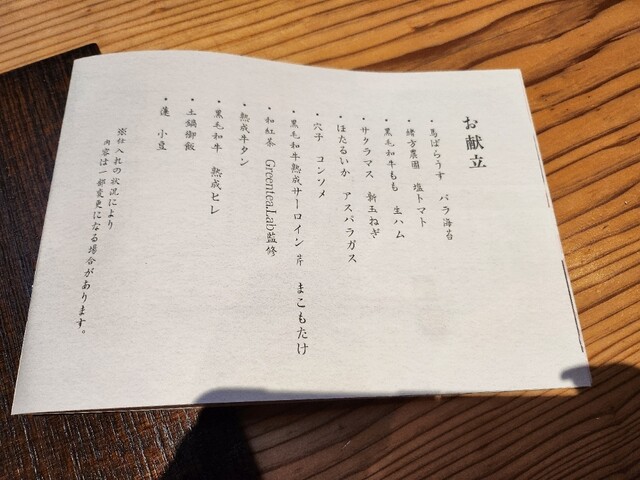 お献立
・馬ばらうす　バラ海苔
・緒方農園　塩トマト
・黒毛和牛もも　生ハム
・サクラマス　新玉ねぎ
・ほたるいか　アスパラガス
・穴子　コンソメ
・黒毛和牛熟成サーロイン　芹　まこもたけ
・和紅茶　GreenteaLab監修
・熟成牛タン
・黒毛和牛　熟成ヒレ
・土鍋御飯
・蓮　小豆
※仕入れの状況により
内容は一部変更になる場合があります。